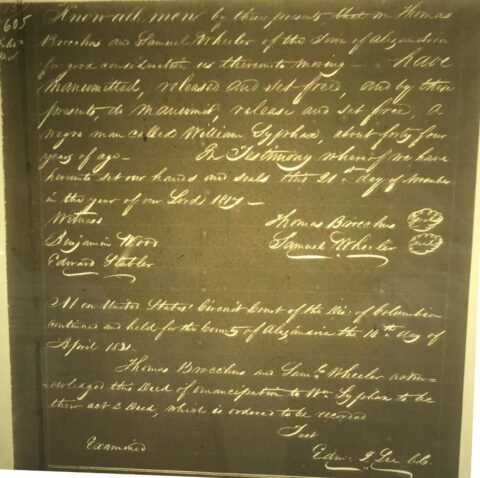 605
Know all men by these presents that we Thomas
Brocchus and Samuel Wheeler of the Town of Alexandria
for good consideration us thereunto moving — have
manumitted, released and set free, and by these
presents, do manumit, release and set free, a
negro man called William Syphax, about forty four
years of age — In Testimony whereof we have
hereunto set our hands and seals this 21st day of November
in the year of our Lord 1817 —
Witness
Thomas Brocchus Seal
Benjamin Wood
Samuel Wheeler Seal
Edward Stabler
At an United States' Circuit Court of the Dis: of Columbia
continued and held for the County of Alexandria the 14th day of
April 1831.
Thomas Brocchus and Saml Wheeler acknow-
-ledged this Deed of emancipation to Wm Syphax to be
their act & Deed, which is ordered to be recorded
Test
Examined
Edm: I. Lee C.C.